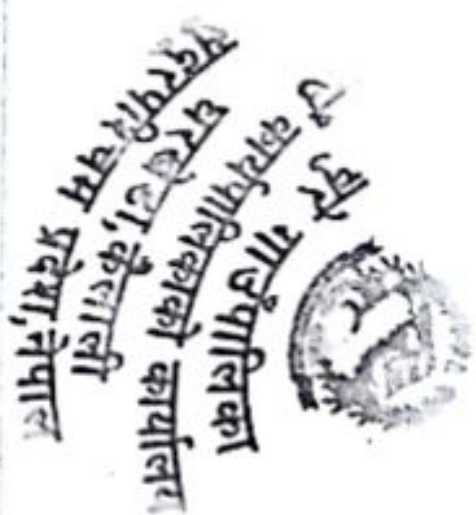 चुरे गाउँपालिका
कार्यपालिकाको कार्यालय
घरखेडा, कैलाली
सुदूरपश्चिम प्रदेश, नेपाल